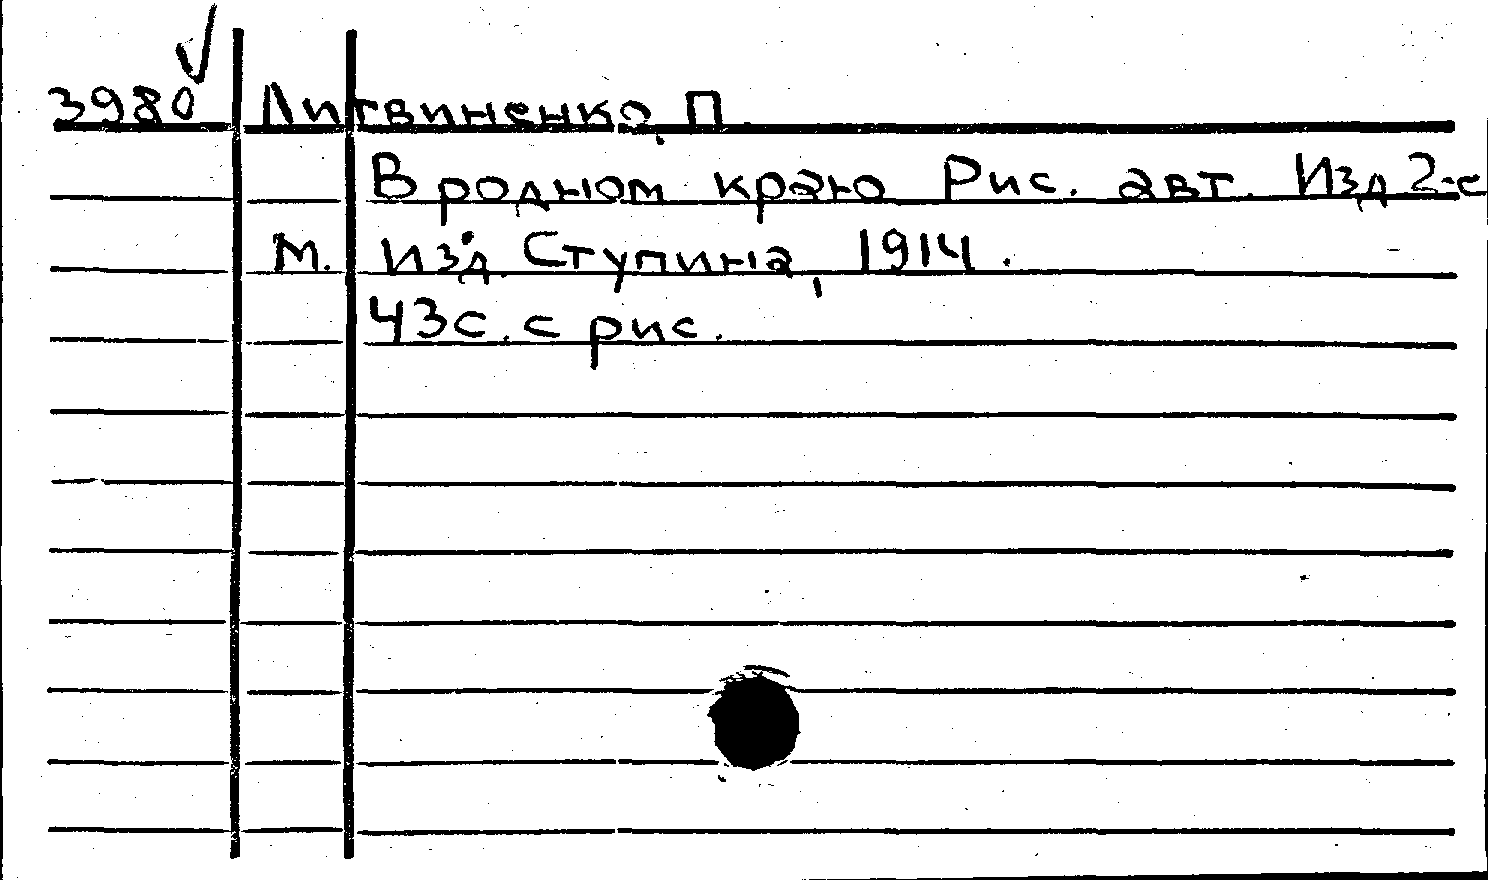 3980 Литвиненко, П.
В родном краю Рис. авт. Изд 2-е
М. Изд. Ступина, 1914.
43с. с рис.